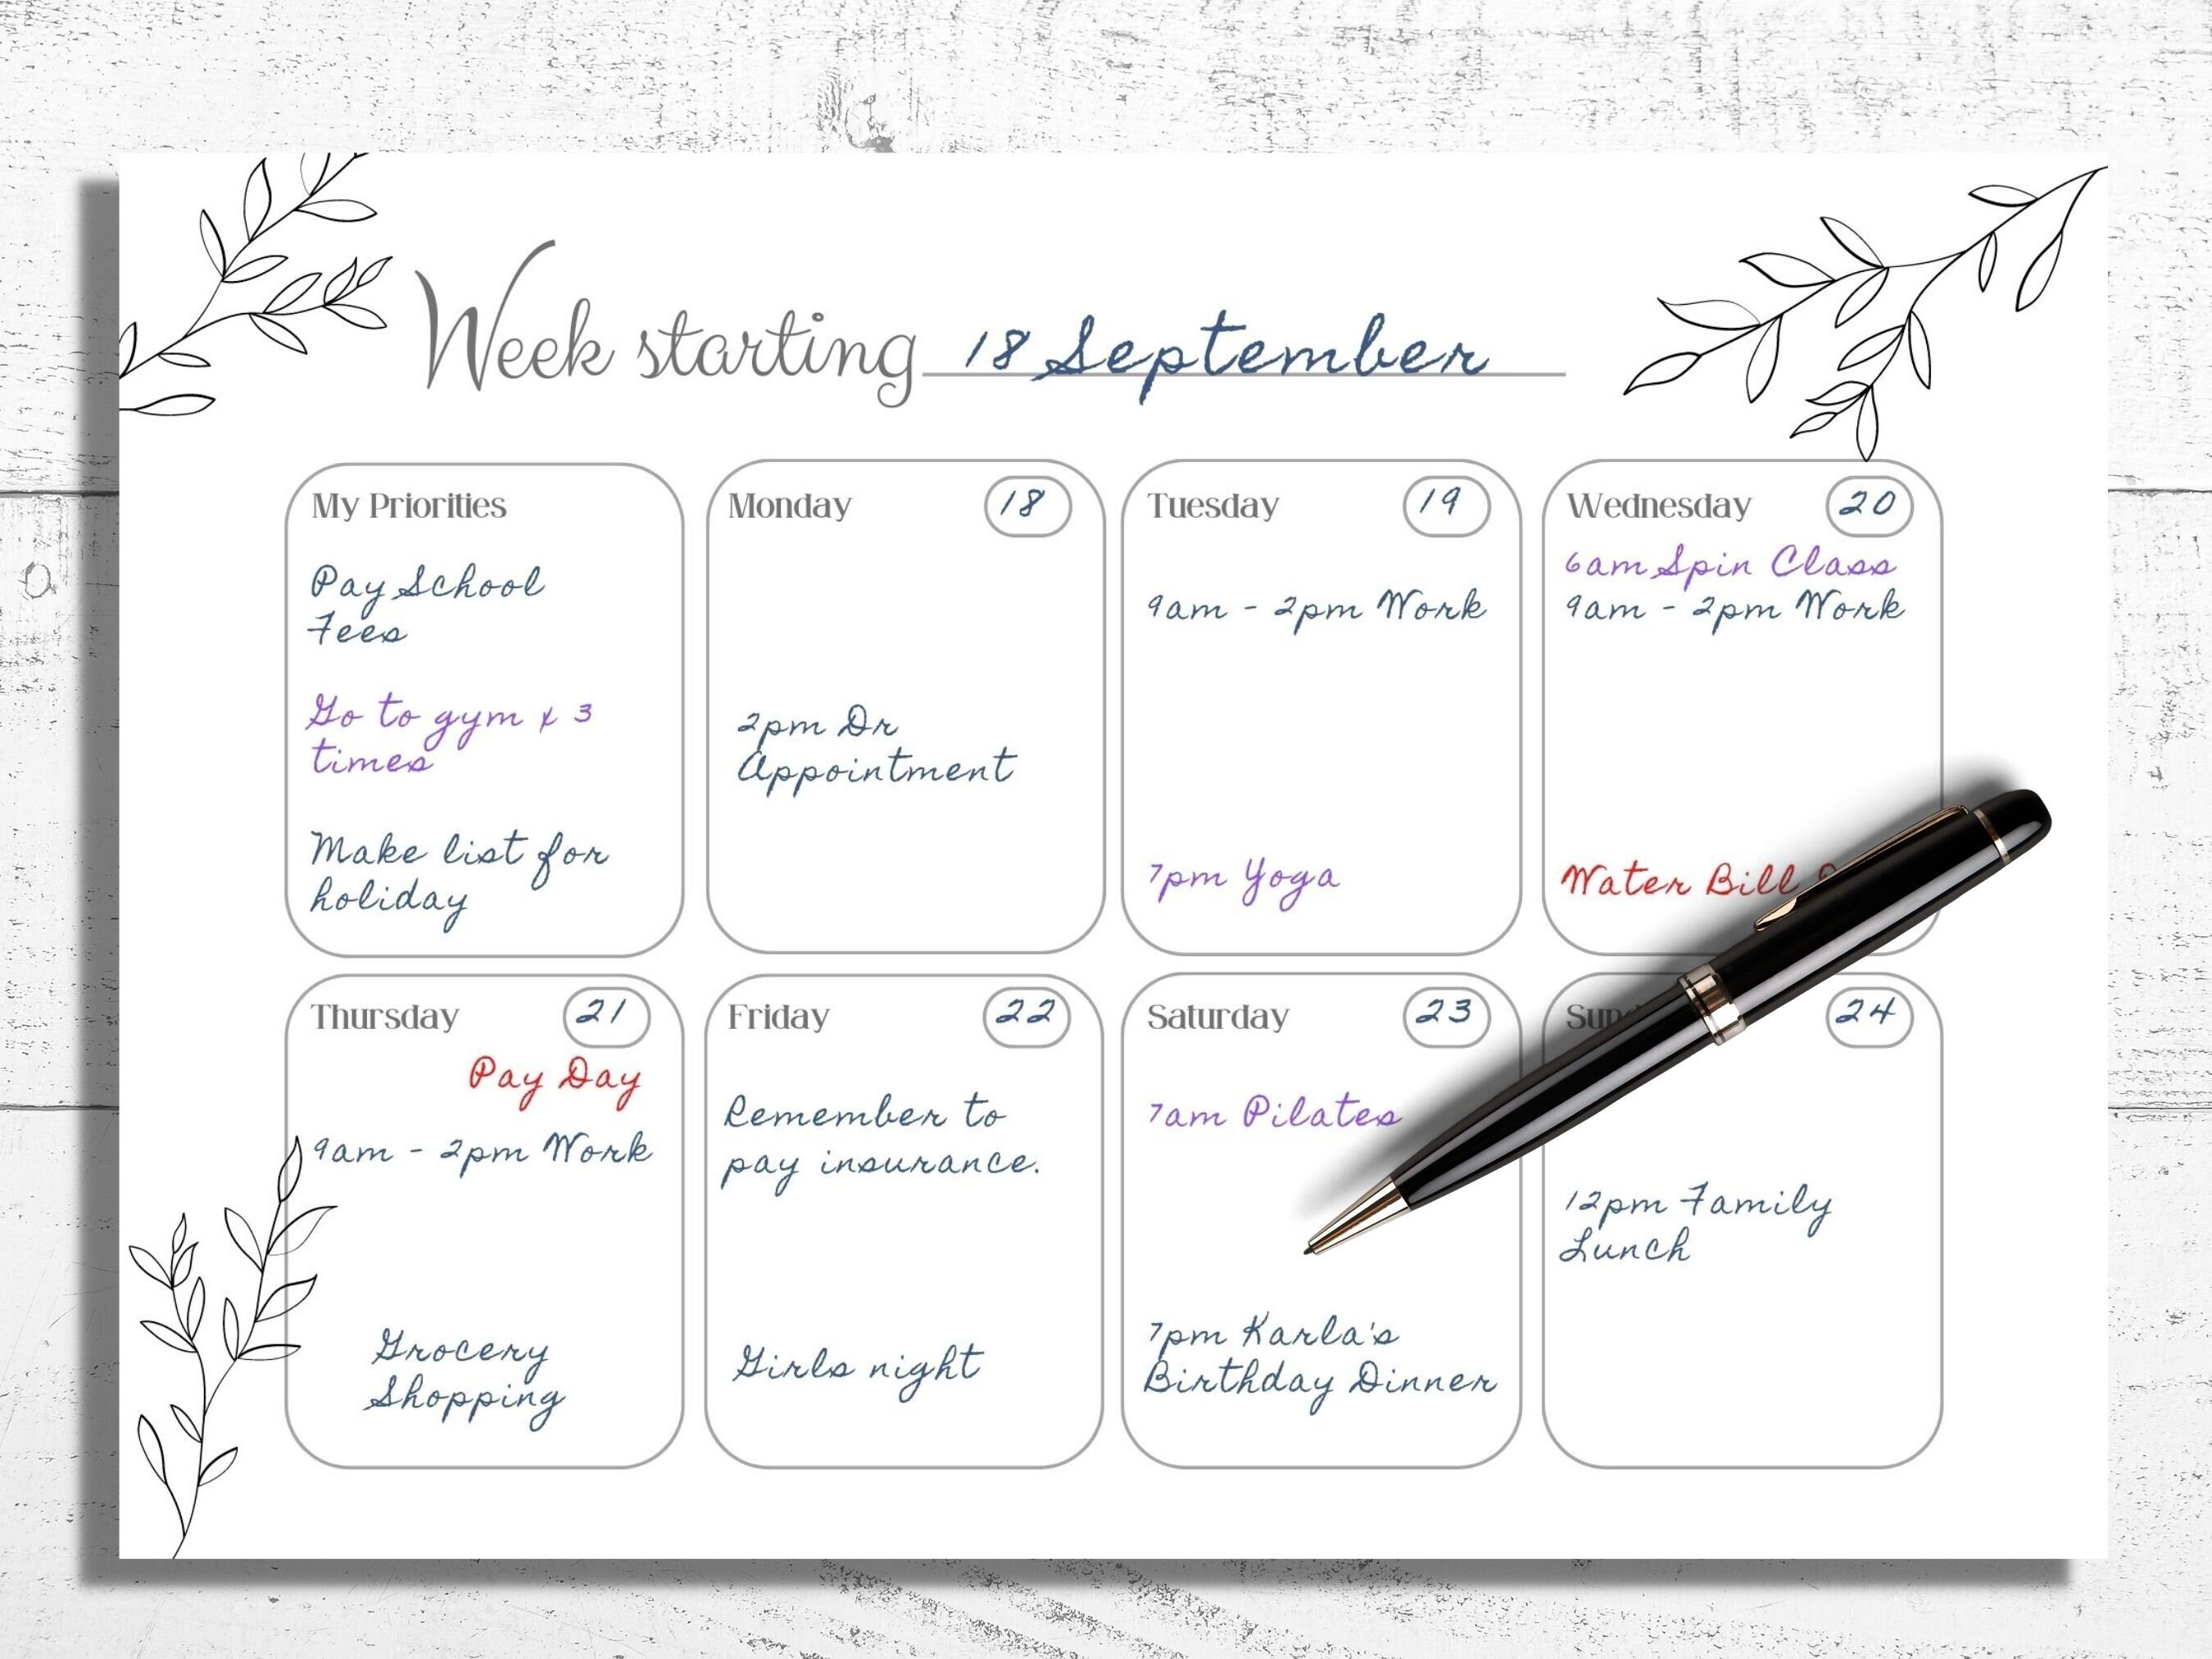 Week starting 18 September
My Priorities
Pay School
Fees
Go to gym x 3
times
Make list for
holiday
Monday 18
2pm Dr
Appointment
Tuesday 19
9am - 2pm Work
7pm Yoga
Wednesday 20
6am Spin Class
9am - 2pm Work
Water Bill
Thursday 21
Pay Day
9am - 2pm Work
Grocery
Shopping
Friday 22
Remember to
pay insurance.
Girls night
Saturday 23
7am Pilates
7pm Karla's
Birthday Dinner
24
12pm Family
Lunch